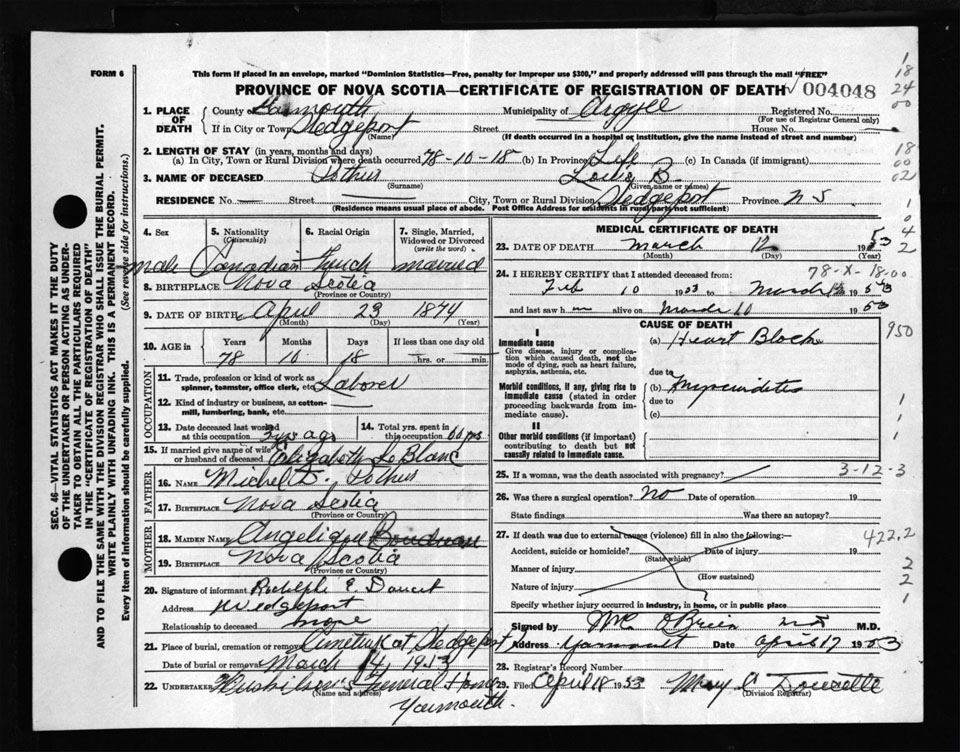 FORM 6
This form if placed in an envelope, marked "Dominion Statistics—Free, penalty for improper use $300," and properly addressed will pass through the mail "FREE"
PROVINCE OF NOVA SCOTIA—CERTIFICATE OF REGISTRATION OF DEATH 004048
1. PLACE OF DEATH
County of Yarmouth Municipality of Argyle Registered No.
(For use of Registrar General only)
If in City or Town Wedgeport Street House No.
(Name) (If death occurred in a hospital or institution, give the name instead of street and number)
2. LENGTH OF STAY (in years, months and days)
(a) In City, Town or Rural Division where death occurred 78-10-18 (b) In Province Life (c) In Canada (if immigrant)
3. NAME OF DECEASED Pothier Louis B.
(Surname) (Given name or names)
RESIDENCE No. — Street — City, Town or Rural Division Wedgeport Province N-S
(Residence means usual place of abode. Post Office Address for residents in rural parts not sufficient)
4. Sex 5. Nationality (Citizenship) 6. Racial Origin 7. Single, Married, Widowed or Divorced (write the word)
male Canadian French married
8. BIRTHPLACE Nova Scotia
(Province or Country)
9. DATE OF BIRTH April 23 1874
(Month) (Day) (Year)
10. AGE in Years Months Days If less than one day old
78 10 18 hrs. or min.
OCCUPATION
11. Trade, profession or kind of work as spinner, teamster, office clerk, etc. Laborer
12. Kind of industry or business, as cotton-mill, lumbering, bank, etc. —
13. Date deceased last worked at this occupation 3 yrs ago 14. Total yrs. spent in this occupation 60 yrs
15. If married give name of wife or husband of deceased Elizabeth LeBlanc
FATHER
16. NAME Michel D. Pothier
17. BIRTHPLACE Nova Scotia
(Province or Country)
MOTHER
18. MAIDEN NAME Angelique Boudreau
19. BIRTHPLACE Nova Scotia
(Province or Country)
20. Signature of informant Rodolphe E. Doucet
Address Wedgeport
Relationship to deceased none
21. Place of burial, cremation or removal Cemetery at Wedgeport
Date of burial or removal March 14, 1953
22. UNDERTAKER Funeral Home
(Name and address)
Yarmouth.
MEDICAL CERTIFICATE OF DEATH
23. DATE OF DEATH March 12 1953
(Month) (Day)
24. I HEREBY CERTIFY that I attended deceased from: 78-X-18-00
Feb 10 1953 to March 12 1953
and last saw him alive on March 10 1953
CAUSE OF DEATH 950
I
Immediate cause
Give disease, injury or complication which caused death, not the mode of dying, such as heart failure, asphyxia, asthenia, etc.
(a) Heart Block
due to
Morbid conditions, if any, giving rise to immediate cause (stated in order proceeding backwards from immediate cause).
(b) Myocarditis
due to
(c)
II
Other morbid conditions (if important) contributing to death but not causally related to immediate cause.
25. If a woman, was the death associated with pregnancy? 3-12-3
26. Was there a surgical operation? No Date of operation 19
State findings Was there an autopsy?
27. If death was due to external causes (violence) fill in also the following:— 422,2
Accident, suicide or homicide? Date of injury 19
(State which)
Manner of injury
(How sustained)
Nature of injury
Specify whether injury occurred in industry, in home, or in public place
Signed by O'Brien M.D.
Address Yarmouth Date April 17 1953
28. Registrar's Record Number
29. Filed April 18 1953 Mary Doucette
(Division Registrar)
SEC. 46—VITAL STATISTICS ACT MAKES IT THE DUTY
OF THE UNDERTAKER OR PERSON ACTING AS UNDER-
TAKER TO OBTAIN ALL THE PARTICULARS REQUIRED
IN THE "CERTIFICATE OF REGISTRATION OF DEATH"
AND TO FILE THE SAME WITH THE DIVISION REGISTRAR WHO SHALL ISSUE THE BURIAL PERMIT.
WRITE PLAINLY WITH UNFADING INK. THIS IS A PERMANENT RECORD.
Every item of information should be carefully supplied. (See reverse side for instructions.)
1
18
24
00
18
00
02
1
0
4
2
1
1
1
2
2
1